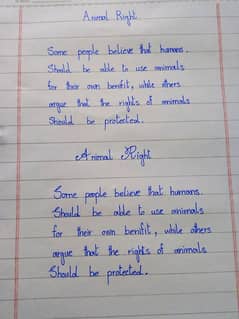 Animal Right
Some people believe that humans.
Should be able to use animals
for their own benifit, while others
argue that the rights of animals
Should be protected.
Animal Right
Some people believe that humans.
Should be able to use animals
for their own benifit, while others
argue that the rights of animals
Should be protected.